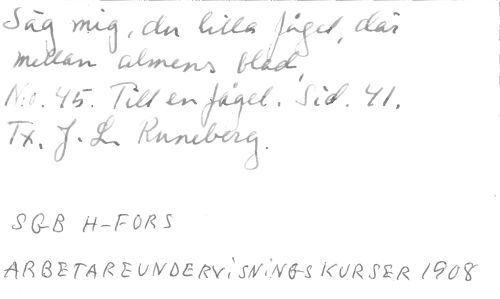 Säg mig, du lilla fågel, där
mellan almens blad,
N:o. 45. Till en fågel. Sid. 41.
Tx. J. L. Runeberg.
SGB H-FORS
ARBETAREUNDERVISNINGSKURSER 1908